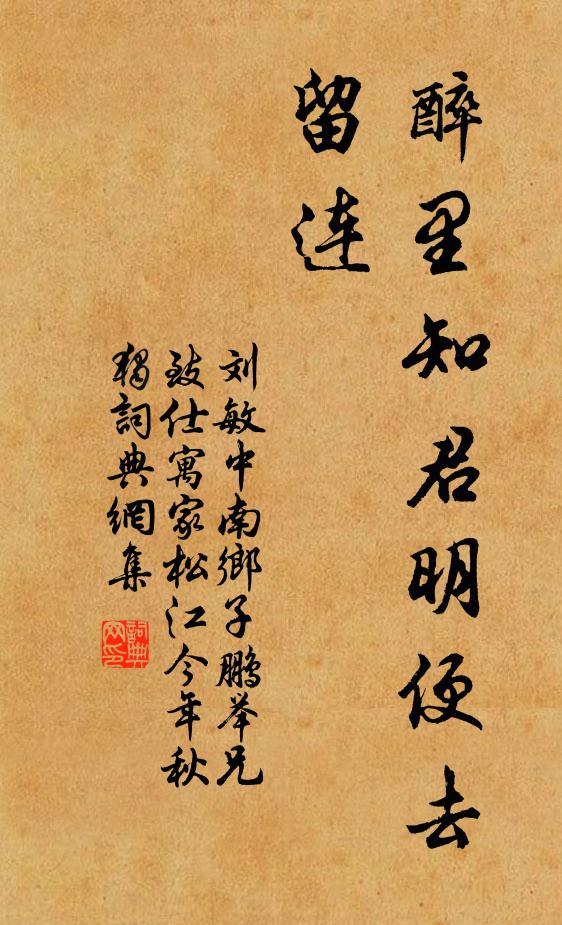 醉里知君明便去
留连
刘敏中南鄉子鵬举兄
致仕寓家松江今年秋
独詞典網集
詞典
网印